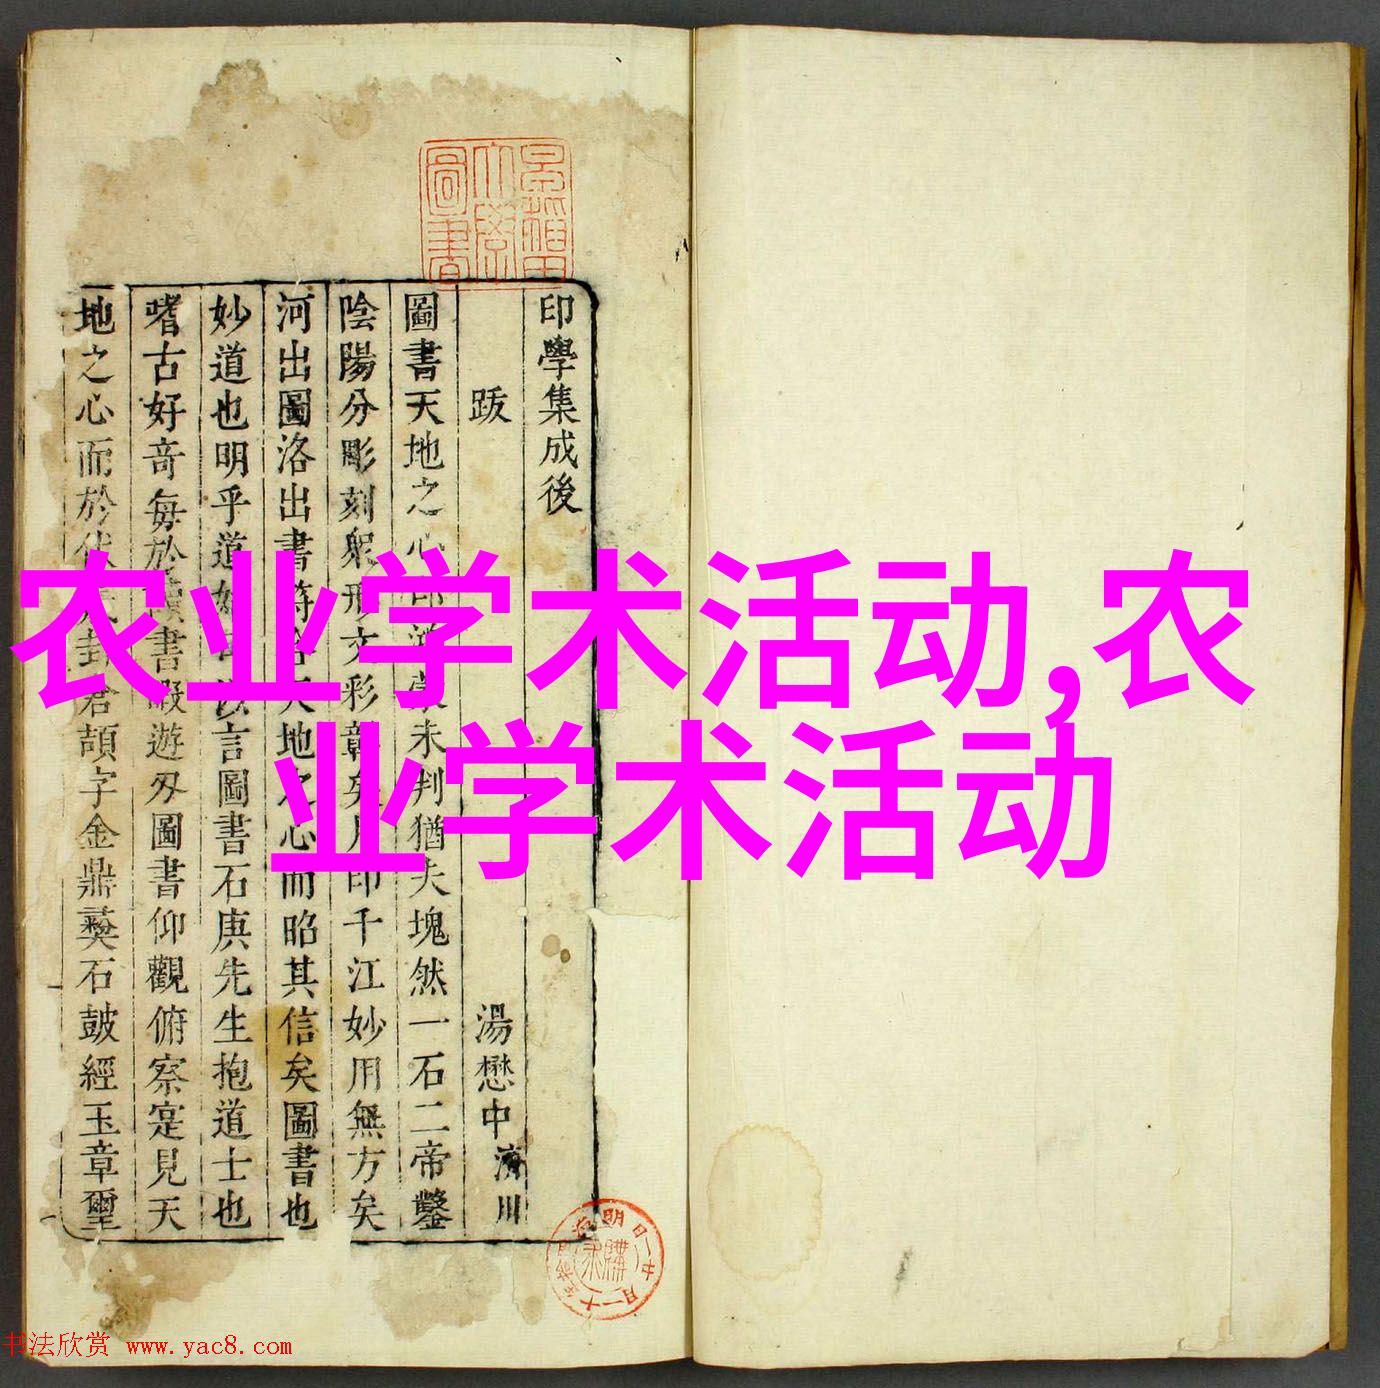 農业学术活动,农
业学术活动
印學集成後
跋
湯懋中 濟川
圖書天地之心
未判猶夫塊然一石二帝鑿
陰陽分彫刻衆形文彩彰矣月印千江妙用無方矣
河出圖洛出書符合天地之心而昭其信矣圖書也
妙道也明乎道
言圖書石庚先生抱道士也
嗜古好竒每於讀書暇遊刃圖書仰觀俯察寔見天
地之心而於
封倉頡字金鼎彝石鼓經玉章璽
書法欣赏 www.yac8.com